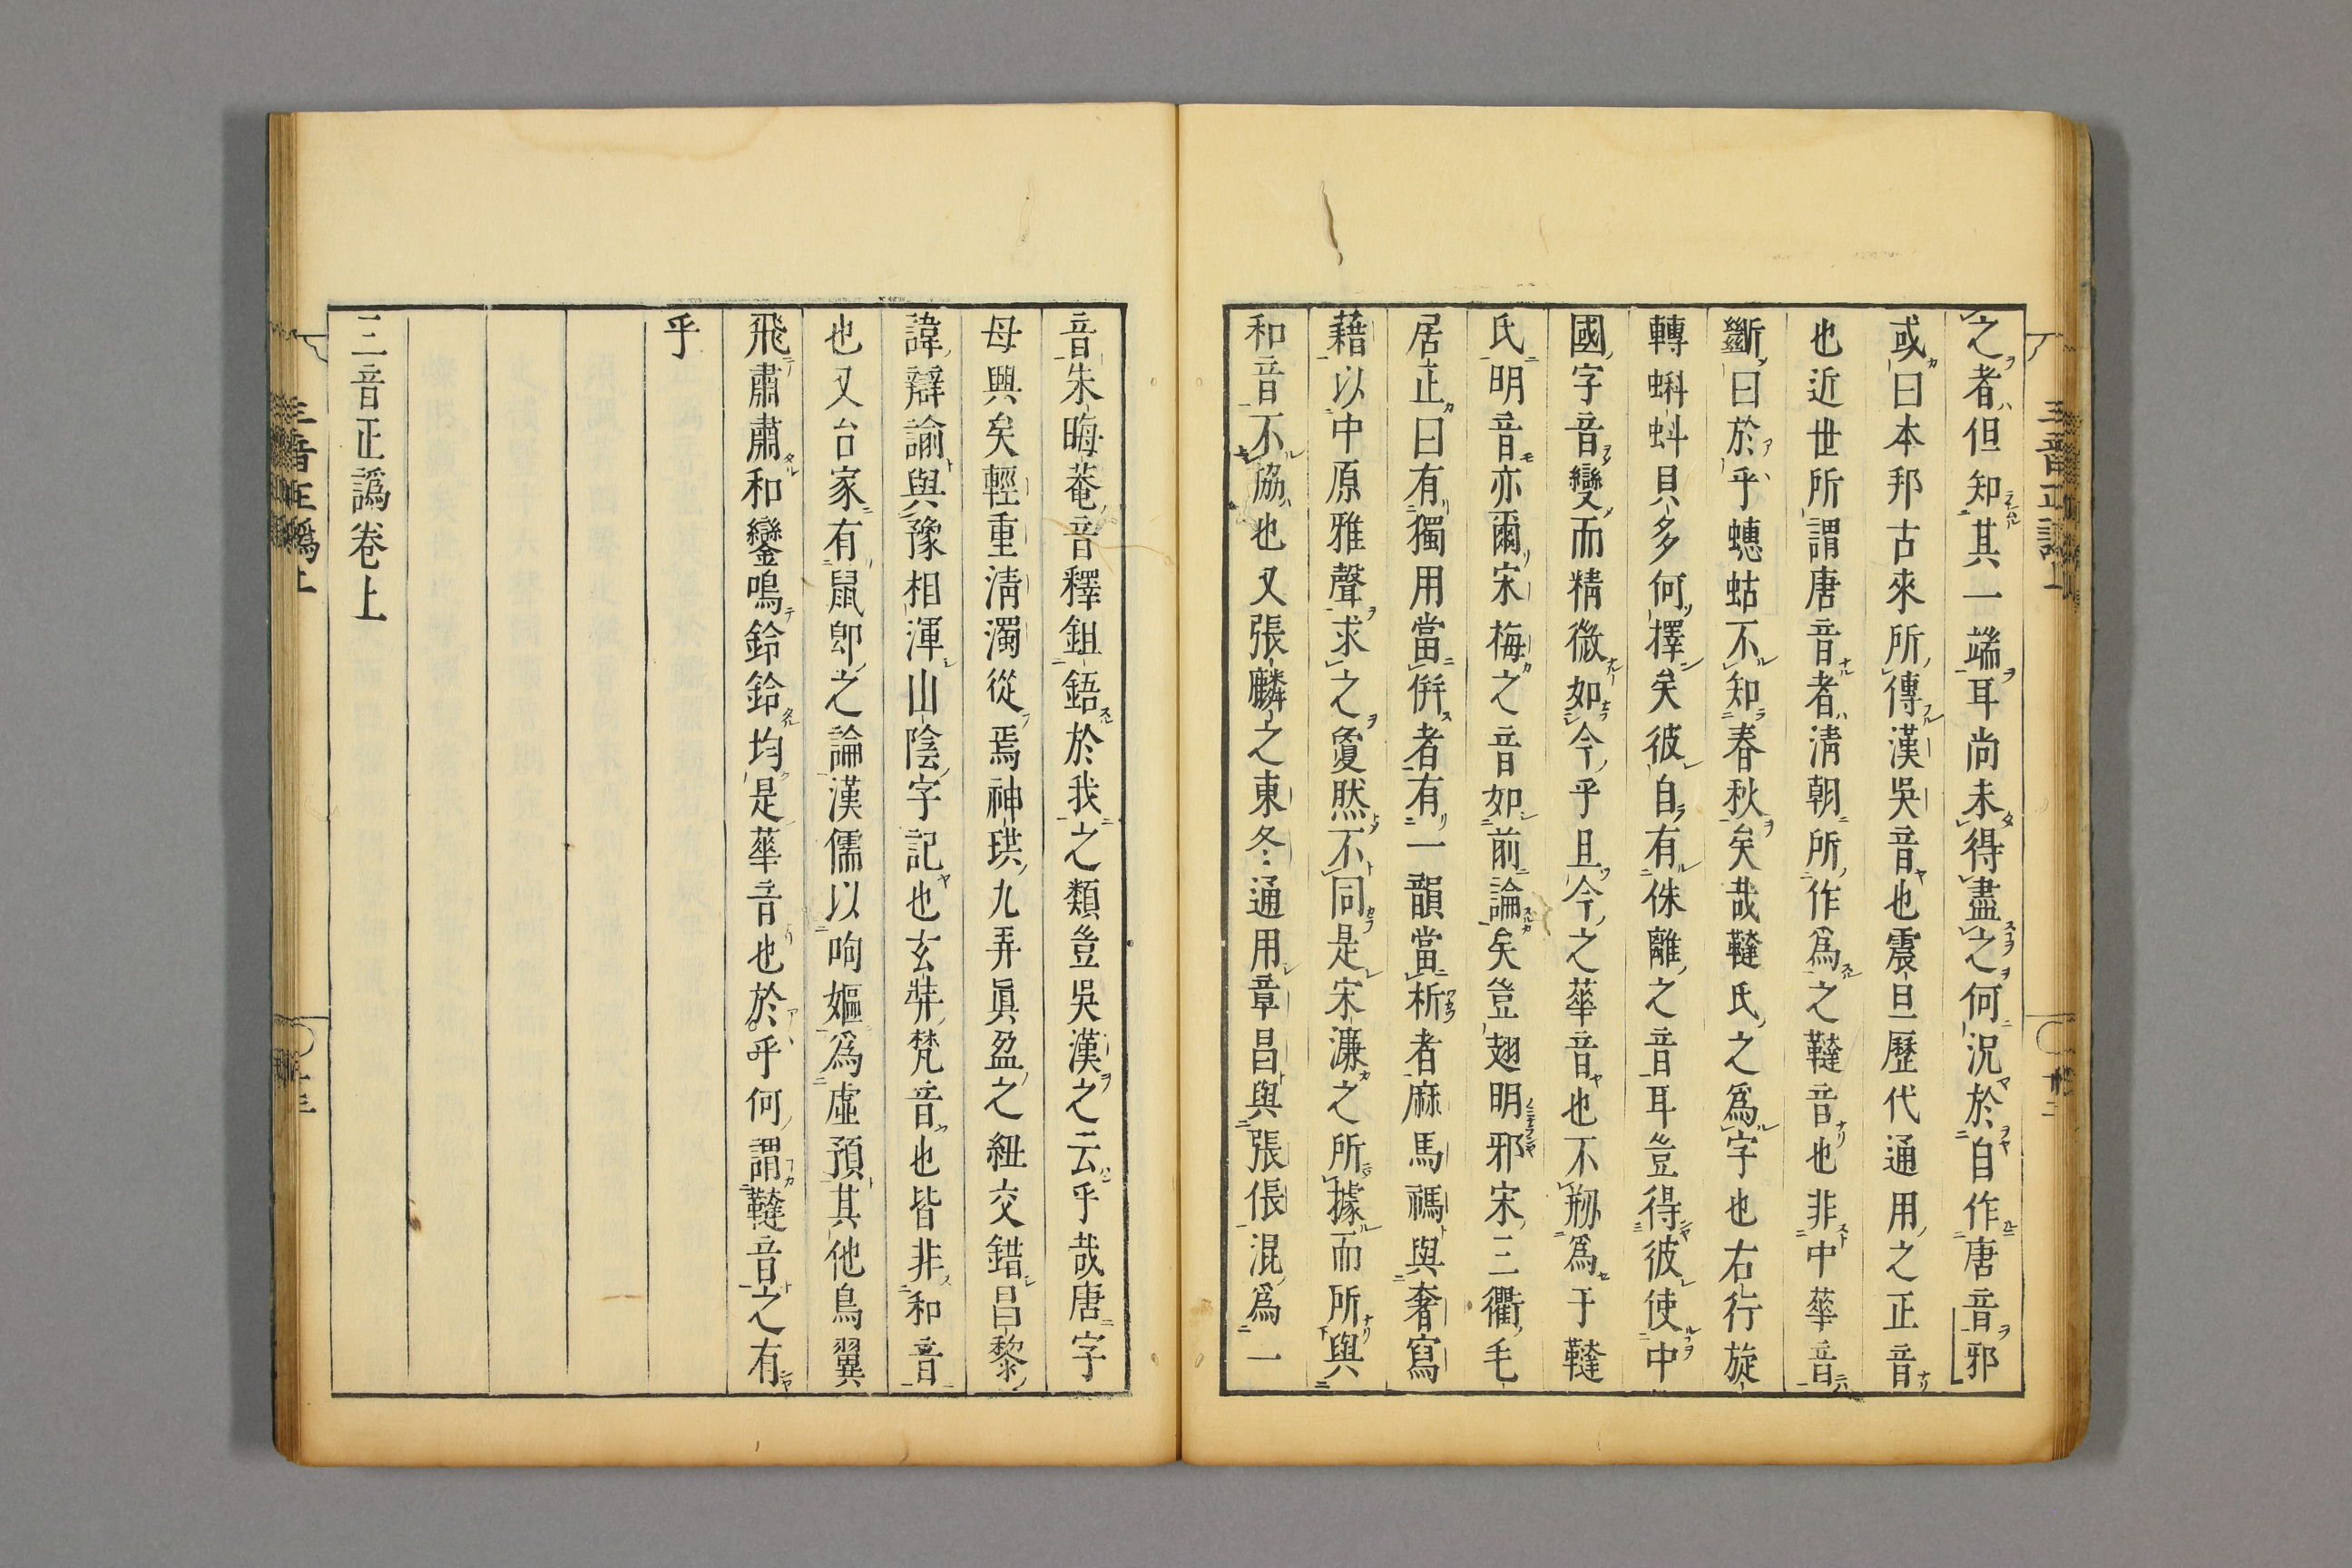 之者但知其一端耳尚未得盡之何況於自作唐音邪
或曰本邦古來所傳漢吳音也震旦歷代通用之正音
也近世所謂唐音者淸朝所作爲之韃音也非中華音
斷曰於乎蟪蛄不知春秋矣哉韃氏之爲字也右行旋
轉蝌蚪貝多何擇矣彼自有侏離之音耳豈得彼使中
國字音變而精微如今乎且今之華音也不剏爲于韃
氏明音亦爾宋梅之音如前論矣豈翅明邪宋三衢毛
居正曰有獨用當倂者有一韻當析者麻馬禡與奢寫
藉以中原雅聲求之夐然不同是宋濂之所據而所與
和音不協也又張麟之東冬通用章昌與張倀混爲一
音朱晦菴音釋鉏鋙於我之類豈吳漢之云乎哉唐字
母興矣輕重淸濁從焉神珙九弄眞盈之紐交錯昌黎
諱辯諭與豫相渾山陰字記也玄奘梵音也皆非和音
也又台家有鼠卽之論漢儒以呴嫗爲虛預其他鳥翼
飛肅肅和鑾鳴鈴鈴均是華音也於乎何謂韃音之有
乎
三音正譌卷上